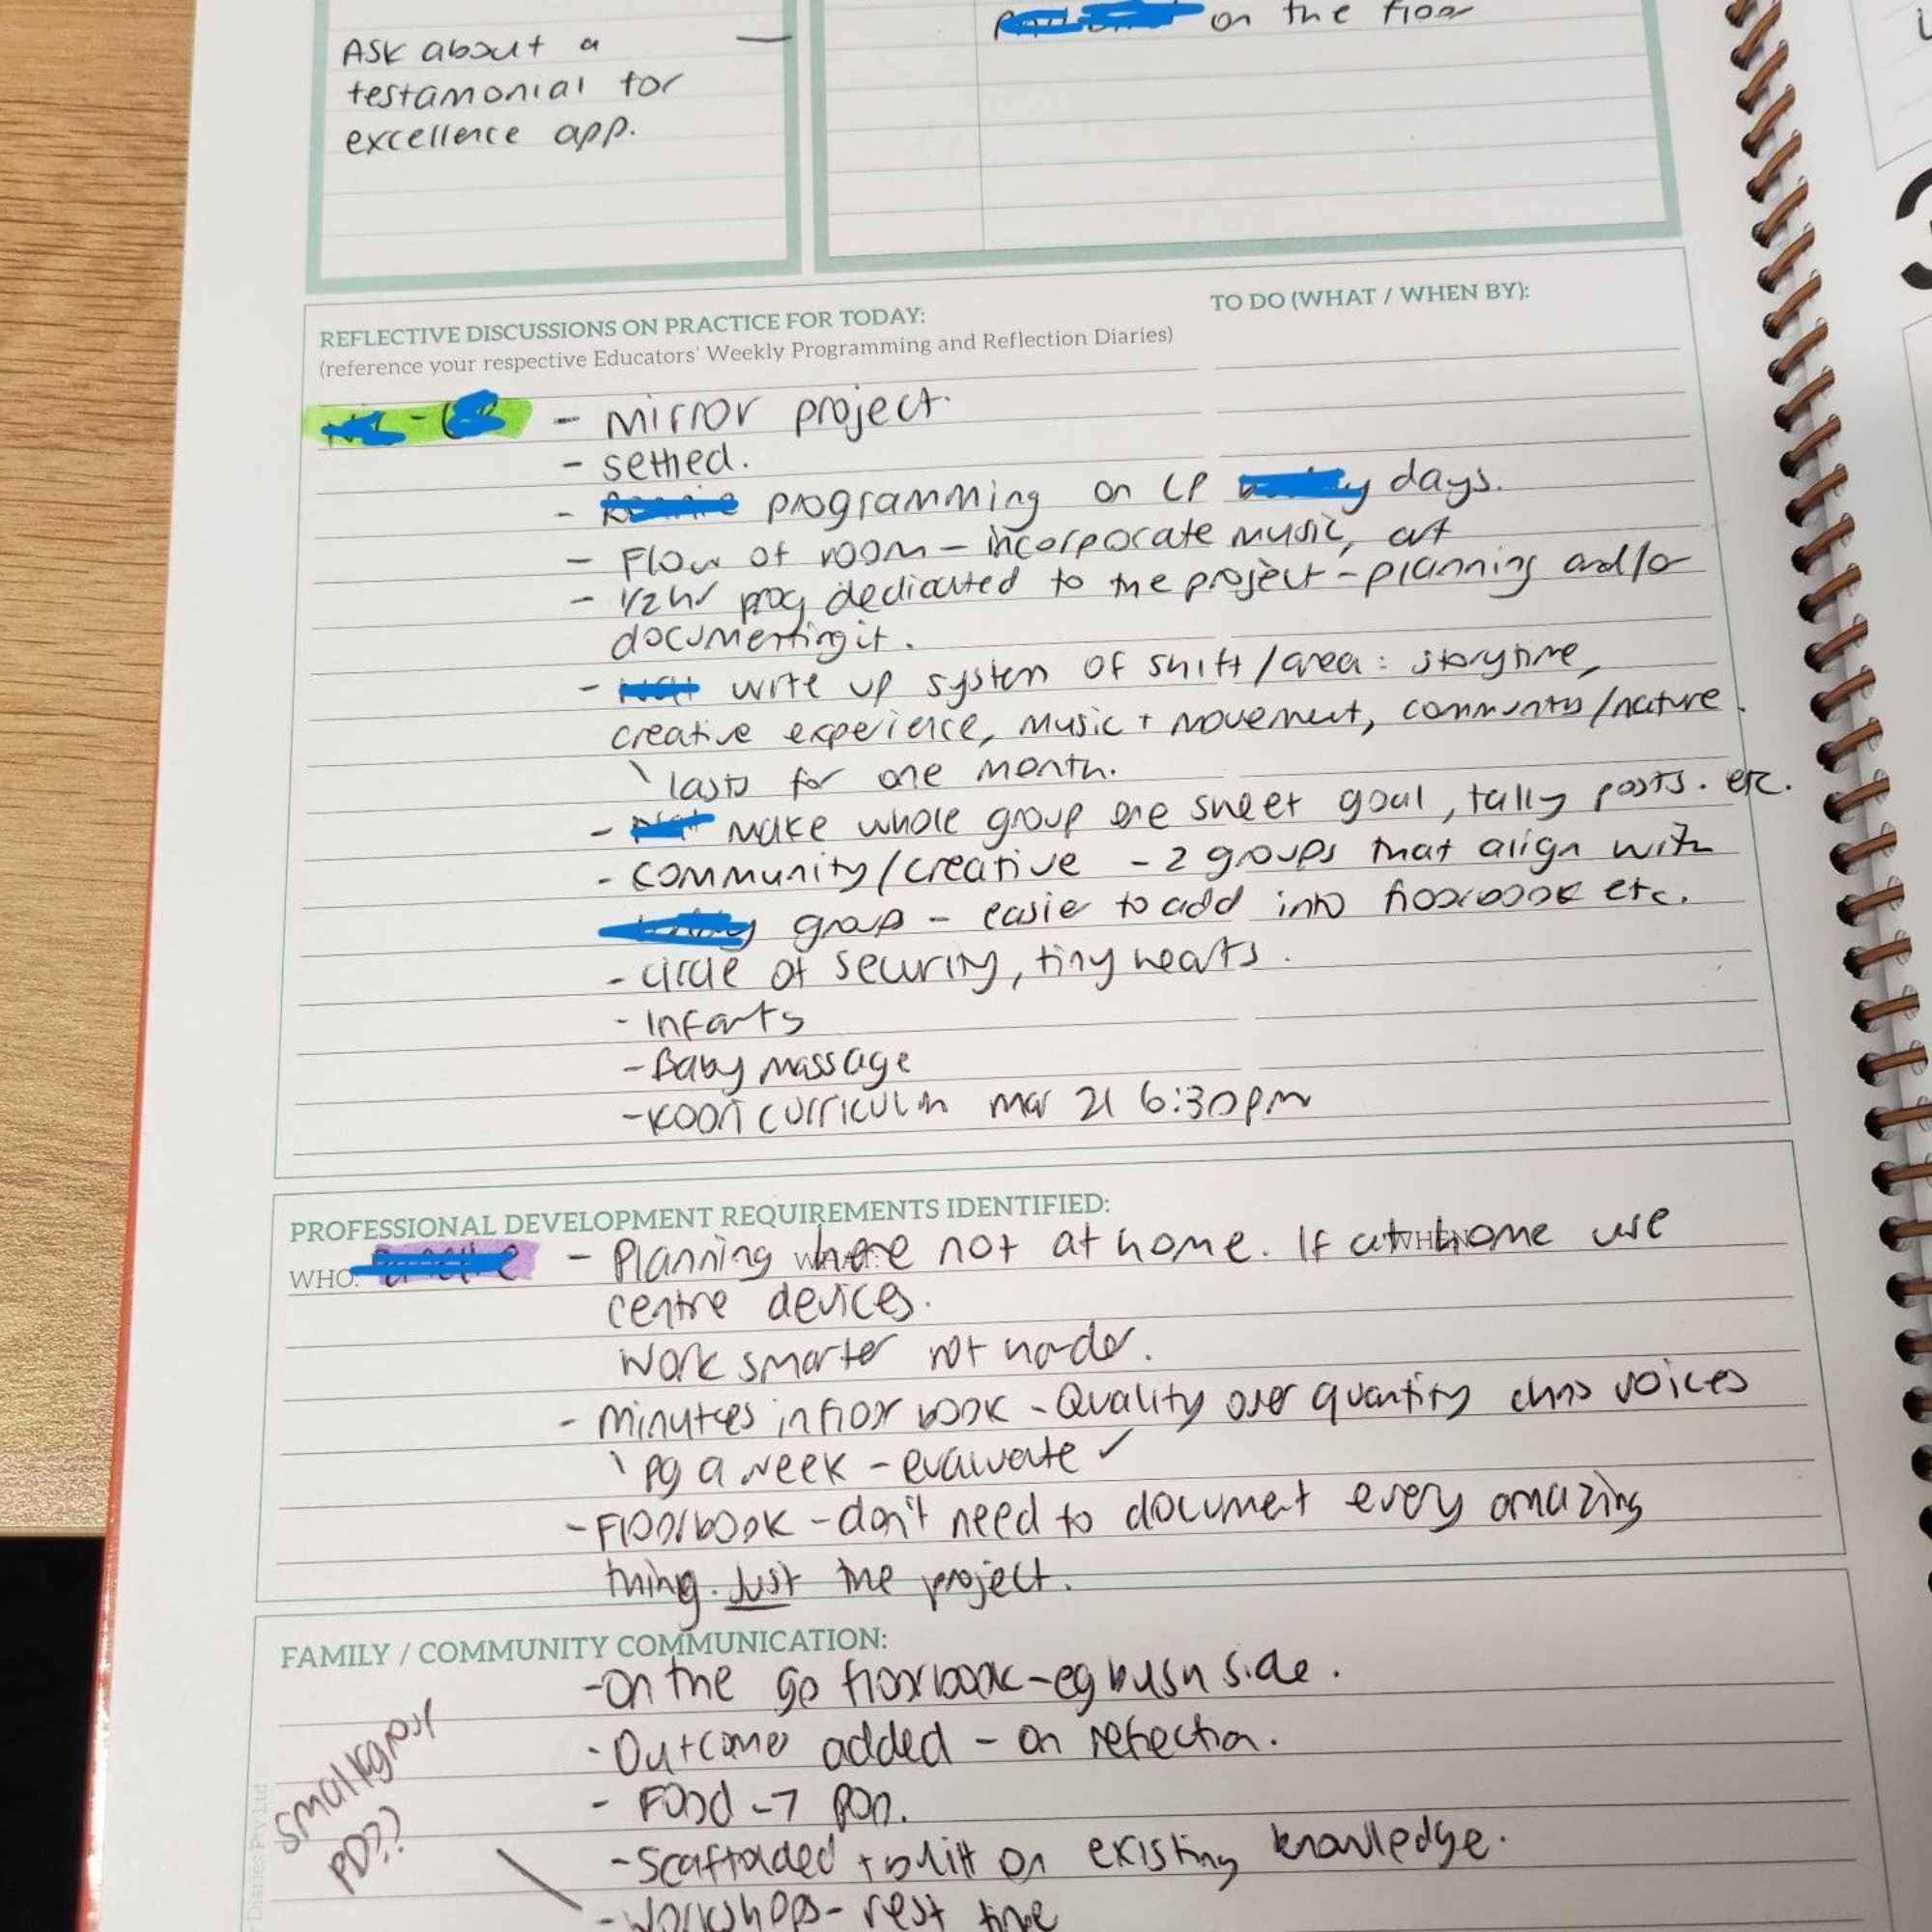 on the floor
Ask about a
testamonial for
excellence app.
REFLECTIVE DISCUSSIONS ON PRACTICE FOR TODAY:
(reference your respective Educators' Weekly Programming and Reflection Diaries)
TO DO (WHAT / WHEN BY):
- mirror project.
- settled.
- programming on LP days.
- Flow of room - incorporate music, art
- 1/2 hr prog dedicated to the project - planning and/or
documenting it.
- write up system of shift/area: storytime,
creative experience, music + movement, community/nature.
lasts for one month.
- make whole group one sheet goal, tally posts. etc.
- community/creative - 2 groups that align with
group - easier to add into floorbook etc.
- circle of security, tiny hearts.
- Infants
- Baby massage
- curriculum mar 21 6:30pm
PROFESSIONAL DEVELOPMENT REQUIREMENTS IDENTIFIED:
WHO: - Planning here not at home. If at home use
centre devices.
Work smarter not harder.
- minutes in floor book - Quality over quantity voices
1 pg a week - evaluate ✓
- Floorbook - don't need to document every amazing
thing. Just the project.
FAMILY / COMMUNITY COMMUNICATION:
- On the go floorbook - eg bush side.
- Outcomes added - on reflection.
- Food
- Scaffolded + built on existing knowledge.
small group
PD??
- workshops - rest time
Diaries Pty Ltd